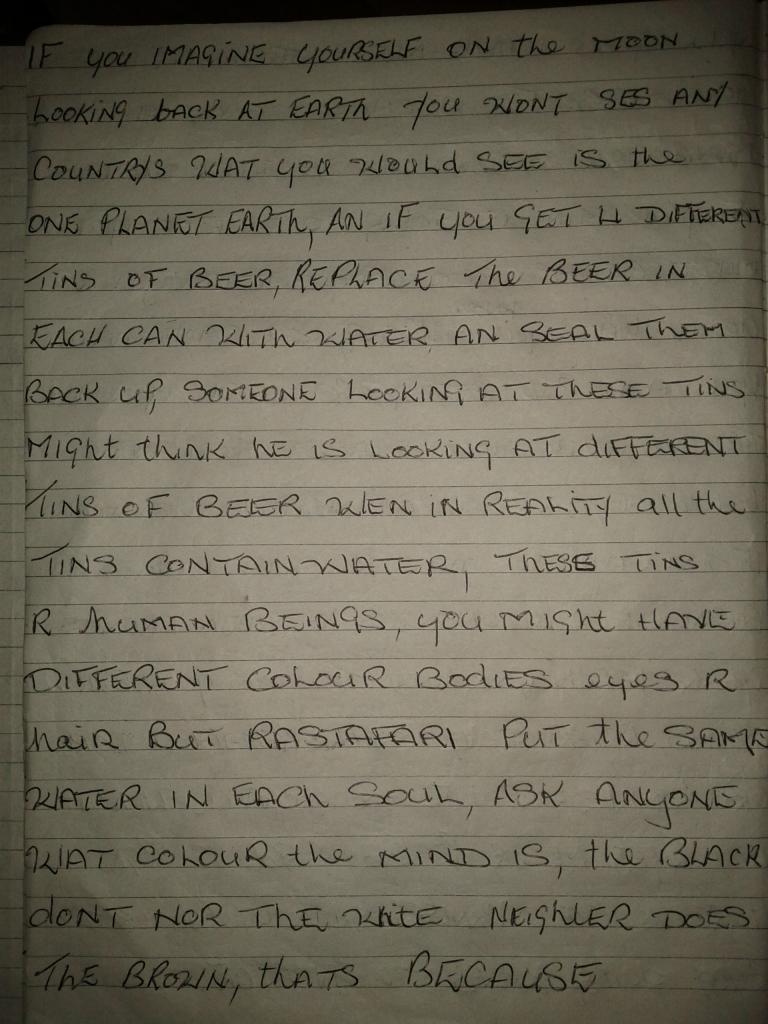 IF you IMAGINE YOURSELF ON the MOON
LOOKING back AT EARTH YOU WONT SES ANY
COUNTRYS WAT you WOULd SEE is the
ONE PLANET EARTH, AN IF you GET 4 DIFFERENT
TiNS OF BEER, REPLACE The BEER IN
EACH CAN WITH WATER AN SEAL THEM
BACK UP, SOMEONE LOOKING AT THESE TINS
MIGht thiNK hE IS LOOKING AT dIFFERENT
TINS OF BEER WEN iN REALITY all the
TINS CONTAIN WATER, THESE TiNS
R hUMAN BEINGS, you MIGht HAVE
DIFFERENT COLOUR BODIES eyes R
haiR BUT RASTAFARI PUT the SAME
WATER IN EACh SOUL, ASK ANyONE
WAT COLOUR the MIND IS, the BLACK
dONT NOR THE WhitE NEIGHLER DOES
THE BROWN, thATS BECAUSE